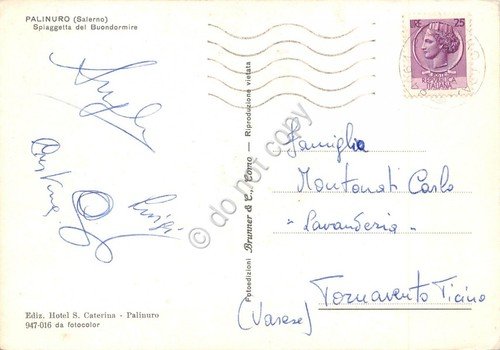 PALINURO (Salerno)
Spiaggetta del Buondormire
Cristina
Luigi
Ediz. Hotel S. Caterina - Palinuro
947-016 da fotocolor
Fotoedizioni Brunner & C., Como - Riproduzione vietata
LIRE 25
REPUBBLICA
ITALIANA
Famiglia
Montonati Carlo
"Lavanderia"
Tornavento Ticino
(Varese)
© do not copy